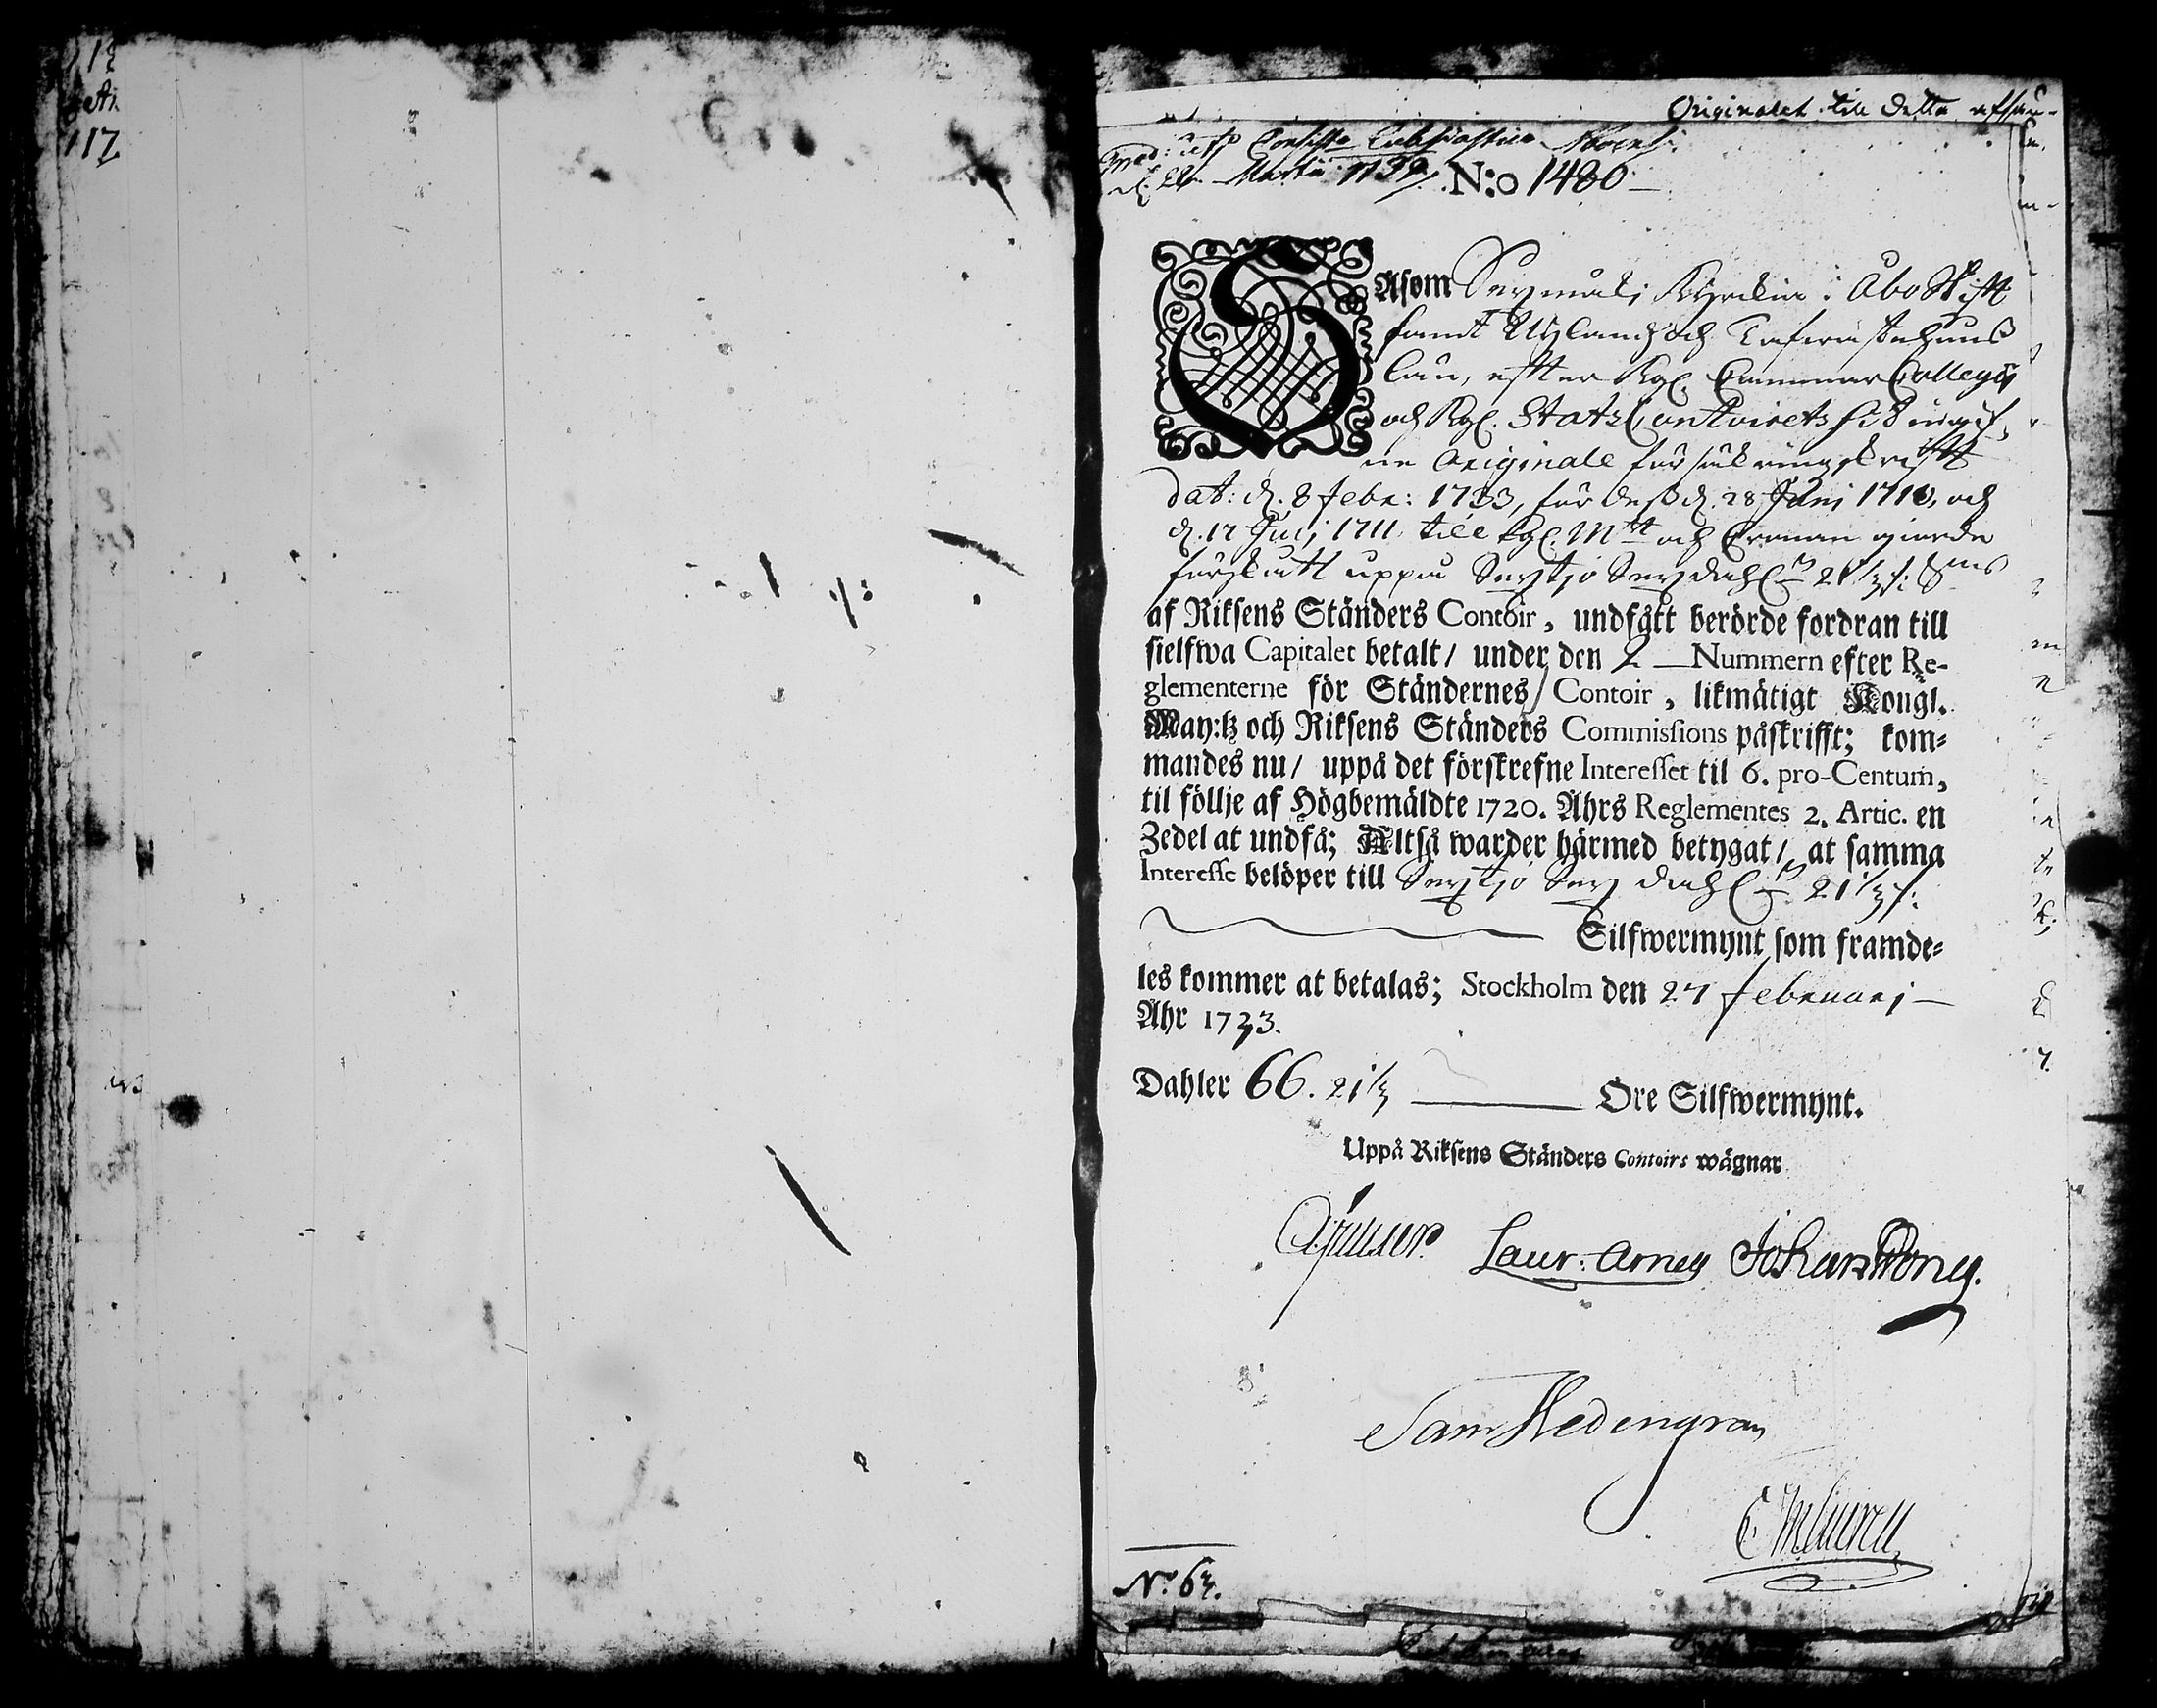 117
Originalet till detta afsän-
Martii 1739. N:o 1480
SAsom Sexmäki Kyrckia i Åbo Stift
samt Nyland och Tafwastehuus
Län, efter Kgl. Cammar Collegii
och Kgl. Stats Contoirets hit ingif-
ne Originale försäkringsskrift
dat: d. 8 Febr: 1733, för dess d. 28 Juni 1710, och
d. 17 Julj 1711 till Kgl. Mtt och Cronan giorde
förskott uppå Sextijo Sex dahl 21 1/3
af Riksens Ständers Contoir, undfått berörde fordran till
sielfwa Capitalet betalt/ under den 2 Nummern efter Re-
glementerne för Ständernes/ Contoir, likmätigt Kongl.
May:tz och Riksens Ständers Commissions påskrifft; kom-
mandes nu/ uppå det förskrefne Interesset til 6. pro-Centum,
til föllje af Högbemäldte 1720. Ahrs Reglementes 2. Artic. en
Zedel at undfå; Altså warder härmed betygat/ at samma
Interesse belöper till Sextijo Sex dahl 21 1/3
Silfwermynt som framde-
les kommer at betalas; Stockholm den 27 Februarj
Ahr 1733.
Dahler 66. 21 1/3 Ore Silfwermynt.
Uppå Riksens Ständers Contoirs wägnar
Laur: Arneg Johan
Sam Hedengran
No. 63.